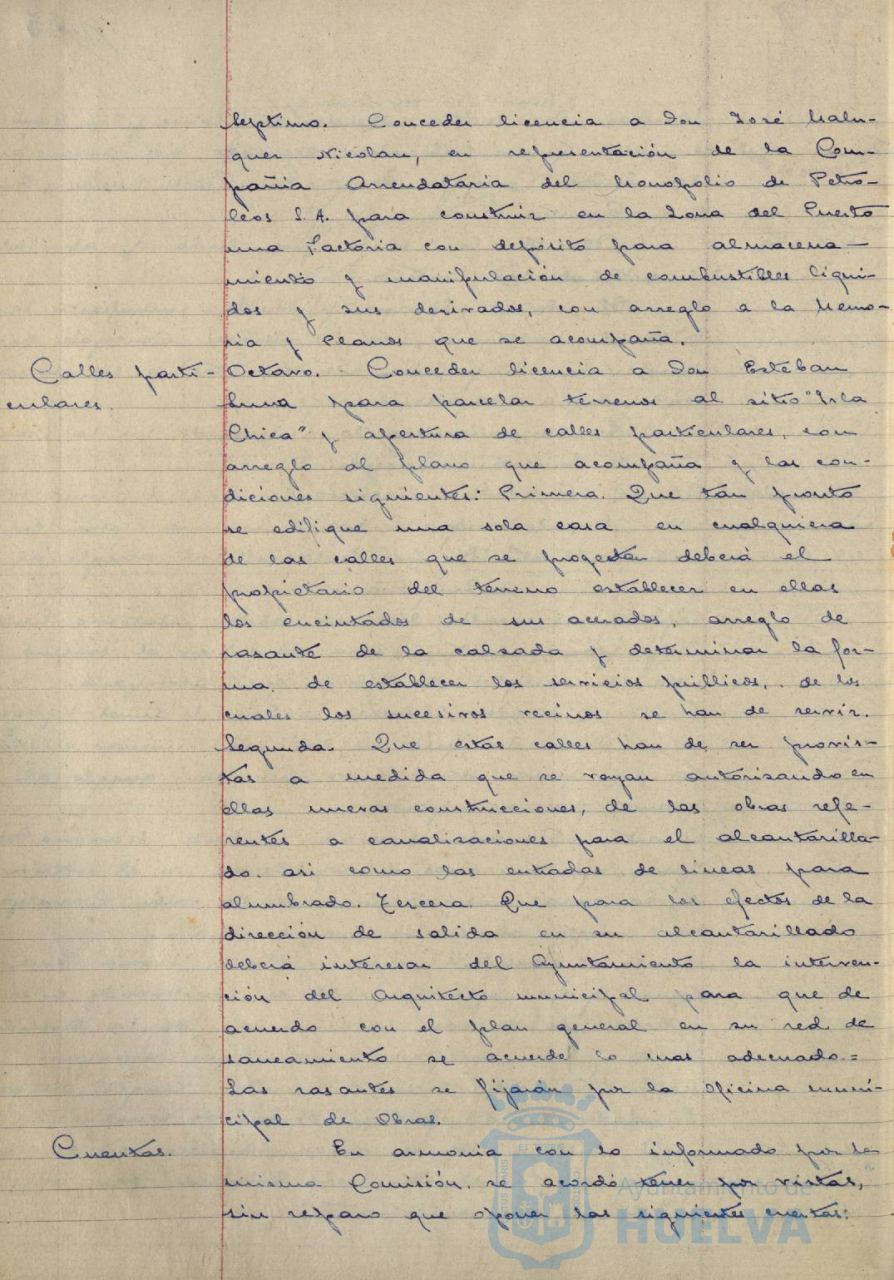 Septimo. Conceder licencia a Don José Malu-
quer Nicolau, en representación de la Com-
pañia Arrendataria del Monopolio de Petro-
leos S.A. para construir en la Zona del Puerto
una Factoria con depósito para almacena-
miento y manipulación de combustibles liqui-
dos y sus derivados, con arreglo a la Memo-
ria y Planos que se acompaña.
Calles parti-
culares.
Octavo. Conceder licencia a Don Esteban
para parcelar terrenos al sitio "Isla
Chica" y apertura de calles particulares, con
arreglo al plano que acompaña y las con-
diciones siguientes: Primera. Que tan pronto
se edifique una sola casa en cualquiera
de las calles que se proyectan deberá el
propietario del terreno establecer en ellas
los encintados de sus acerados, arreglo de
rasante de la calzada y determinar la for-
ma de establecer los servicios públicos, de los
cuales los sucesivos vecinos se han de servir.
Segunda. Que estas calles han de ser provis-
tas a medida que se vayan autorizando en
ellas nuevas construcciones, de las obras refe-
rentes a canalizaciones para el alcantarilla-
do. asi como las entradas de lineas para
alumbrado. Tercera. Que para los efectos de la
dirección de salida en su alcantarillado
deberá interesar del Ayuntamiento la interven-
ción del Arquitecto municipal para que de
acuerdo con el plan general en su red de
saneamiento se acuerde lo mas adecuado.=
Las rasantes se fijarán por la Oficina muni-
cipal de Obras.
Cuentas.
En armonia con lo informado por la
misma Comisión. se acordó tener por vistas,
sin reparo que oponer las siguientes cuentas:
Ayuntamiento de
HUELVA